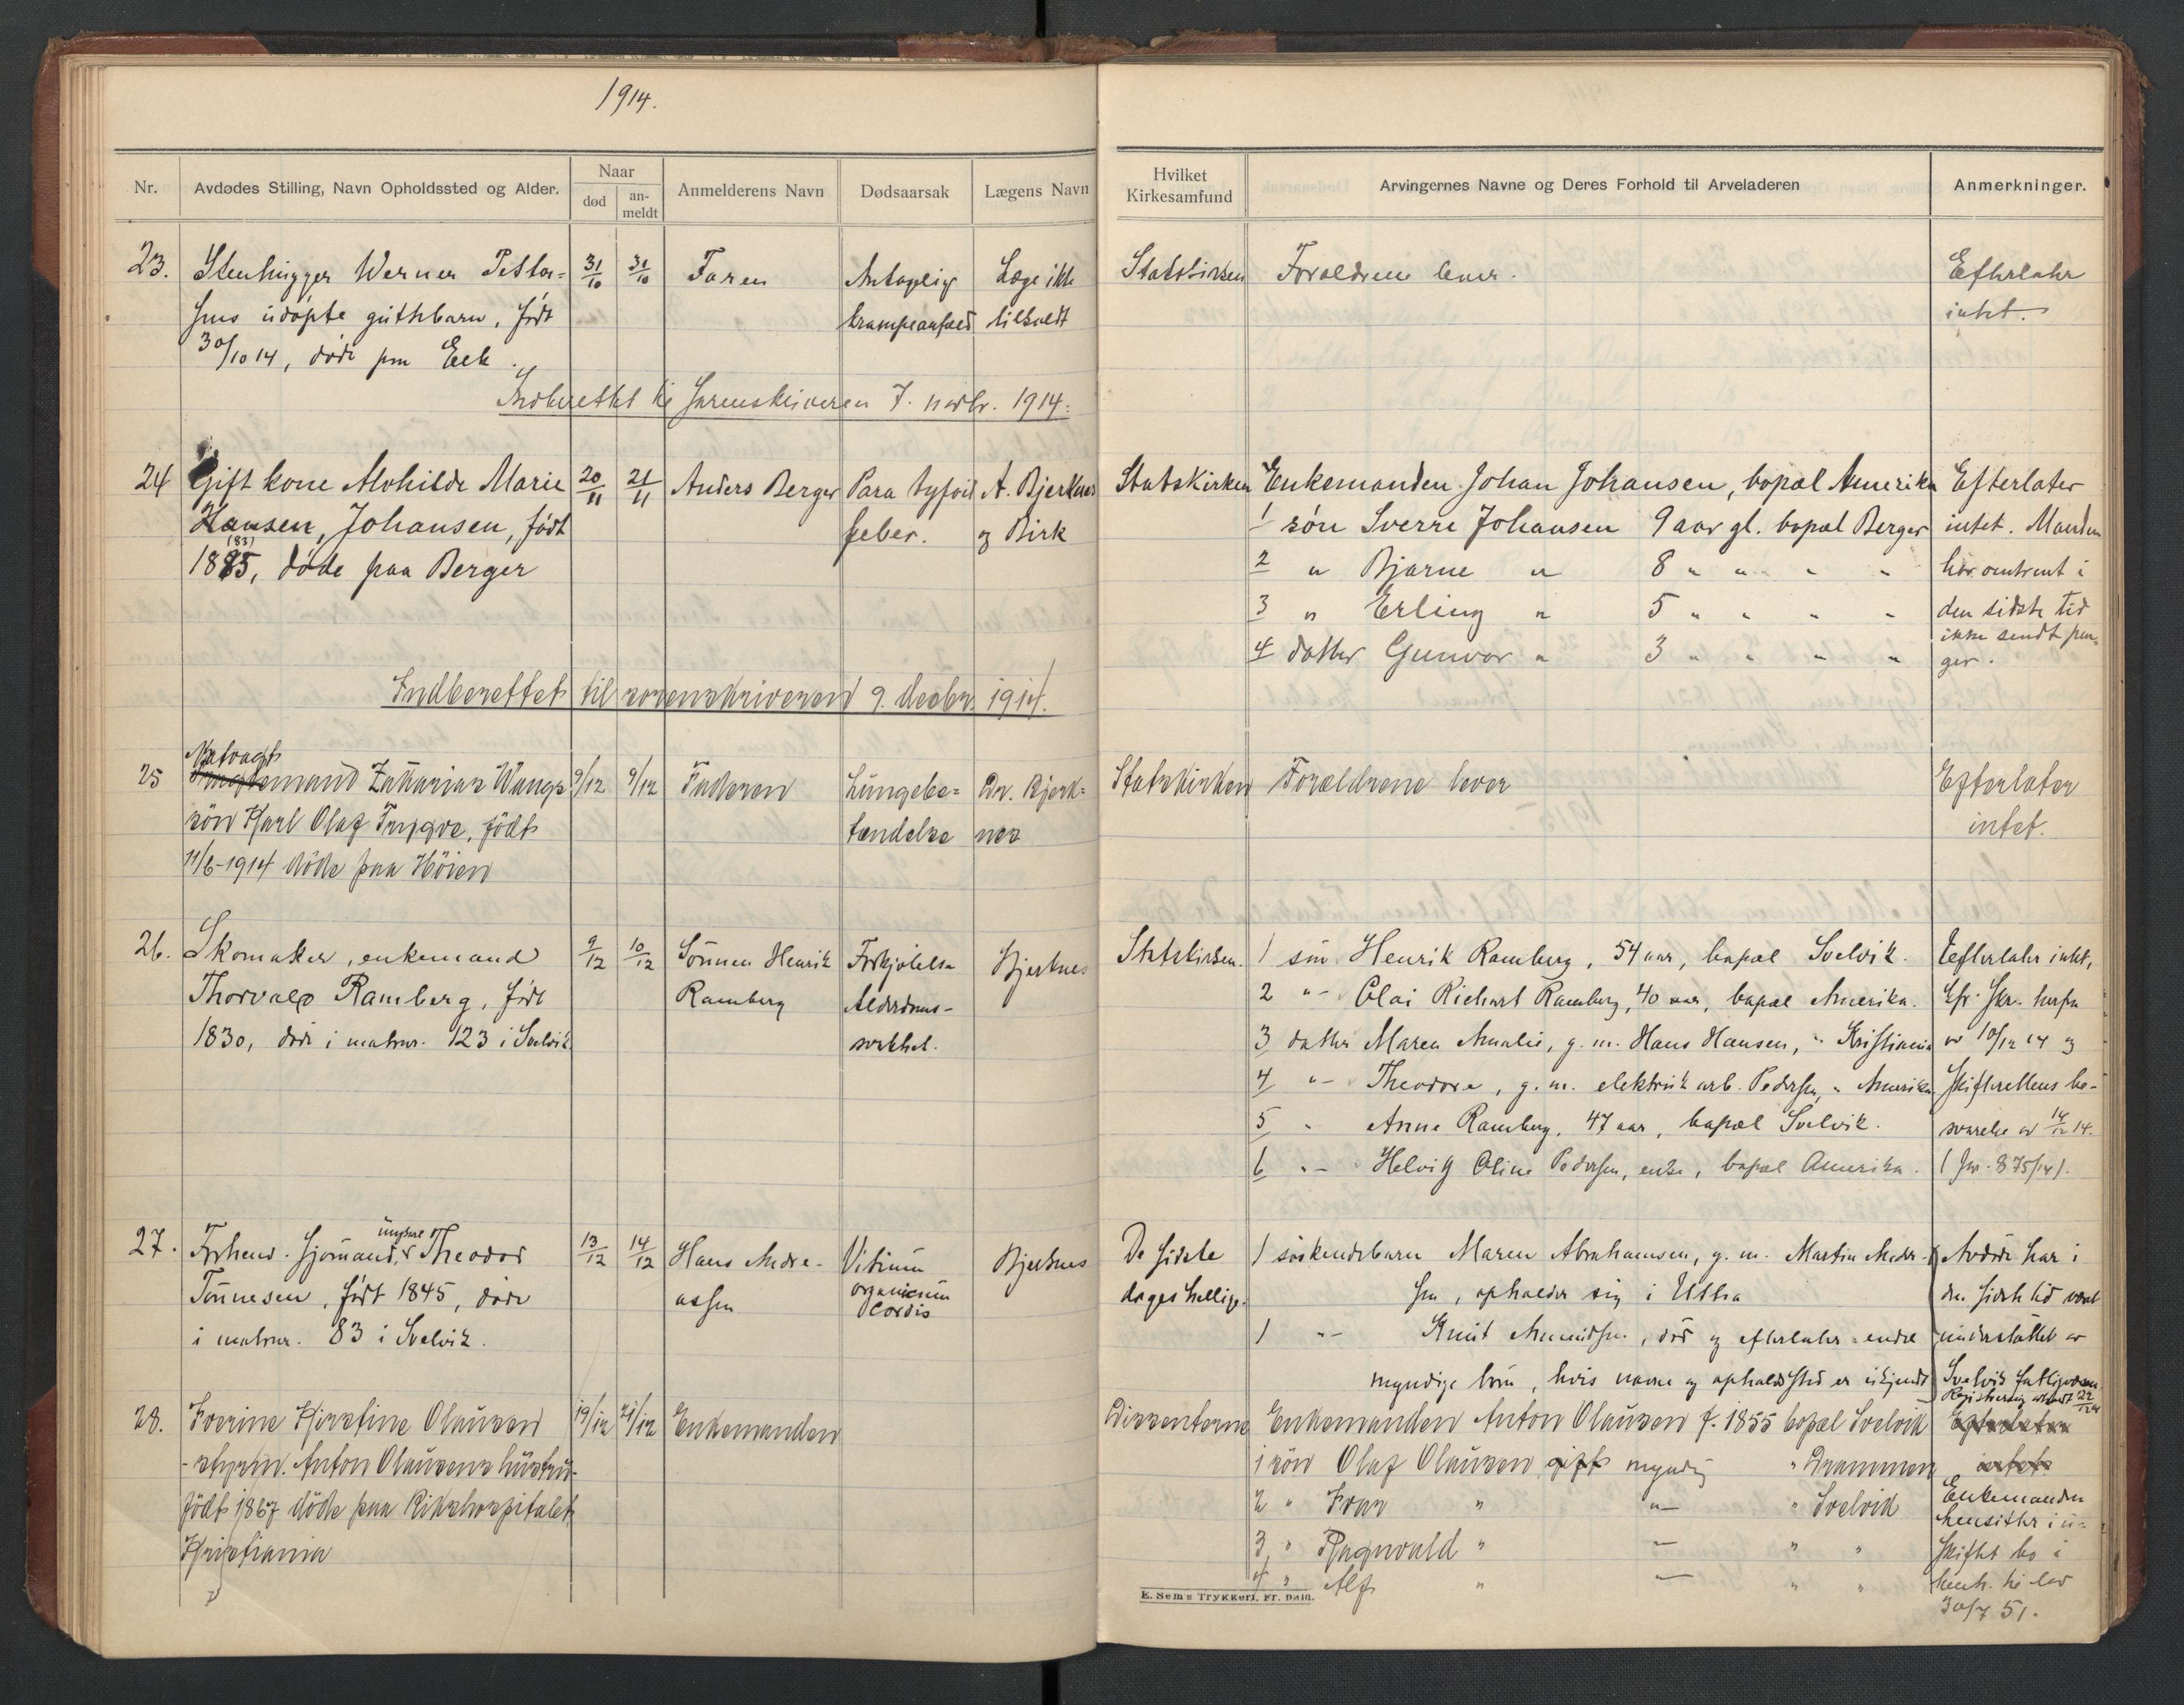 1914.
Nr. Avdødes Stilling, Navn Opholdssted og Alder. Naar død an-meldt Anmelderens Navn Dødsaarsak Lægens Navn
Hvilket Kirkesamfund Arvingernes Navne og Deres Forhold til Arveladeren Anmerkninger.
23. Stenhugger Werner Petter= 31/10 31/10 Faren Antagelig Læge ikke Statskirken Forældrene lever. Efterlater
sens udøpte guttebarn, født krampeanfald tilkaldt intet.
30/10 14, døde paa Eek.
Indberettet til sorenskriveren 7. novbr. 1914.
24 Gift kone Alvhilde Marie 20/11 21/11 Anders Berger Para tyfoid A. Bjerknes Statskirken Enkemanden Johan Johansen, bopæl Amerika Efterlater
Hansen, Johansen, født feber. og Birk 1 søn Sverre Johansen 9 aar gl. bopæl Berger intet. Manden
(83)
1885, døde paa Berger 2 " Bjarne " 8 " " " " har omtrent i
3 " Erling " 5 " " " " den sidste tid
4 datter Gunvor " 3 " " " " ikke sendt pen-
ger.
Indberettet til sorenskriveren 9. decbr. 1914.
Natvagt
25 mand Zakarias Wangs= 9/12 9/12 Faderen Lungebe= Dr. Bjerk= Statskirken Forældrene lever Efterlater
søn Karl Olaf Trygve, født tændelse nes intet.
11/6-1914 døde paa Höien
26. Skomaker, enkemand 9/12 10/12 Sønnen Henrik Forkjølelse Bjerknes Statskirken. 1 søn Henrik Ramberg, 54 aar, bopæl Svelvik. Efterlater intet,
Thorvald Ramberg, født Ramberg Alderdoms- 2 "- Olai Richart Ramberg, 40 aar, bopæl Amerika. Cfr. skr. herfra
1830, døde i matrnr. 123 i Svelvik svakhet. 3 datter Maren Amalie, g. m. Hans Hansen, " Kristiania av 10/12 14 og
4 "- Theodora, g. m. elektrisk arb. Pedersen, " Amerika skifterettens be-
5 " Anne Ramberg, 47 aar, bopæl Svelvik. svarelse av 14/12 14.
6 "- Helvig Oline Pedersen, enke, bopæl Amerika. (Jnr. 875/14).
27. Forhenv. sjømand, ungkarl Theodor 13/12 14/12 Hans Andre- Vitium Bjerknes De sidste 1 søskendebarn Maren Abrahamsen, g. m. Martin Andr- Avdøde har i
Tønnesen, født 1845, døde assen organicum dages hellige. sen, opholder sig i Utha den sidste tid været
i matrnr. 83 i Svelvik. Cordis 1 "- Knut Amundsen, død og efterlater endel understøttet av
myndige børn, hvis navne og opholdssted er ukjendt Svelvik fattigvæsen.
Registrering avholdt 22/12 14
28. Iverine Kirstine Olausen 19/12 21/12 Enkemanden Dissenterne Enkemanden Anton Olausen f. 1855 bopæl Svelvik Efterlater
- styrm. Anton Olausens hustru- 1 søn Olaf Olausen gift myndig " Drammen intet
født 1867 døde paa Rikshospitalet 2 " Ivar " "- " Svelvik Enkemanden
Kristiania 3 " Ragnvald " "- " " hensitter i u-
4 " Alf " "- " " skiftet bo i
henh. til lov
30/7 51.
E. Sems Trykkeri, Fr. hald.